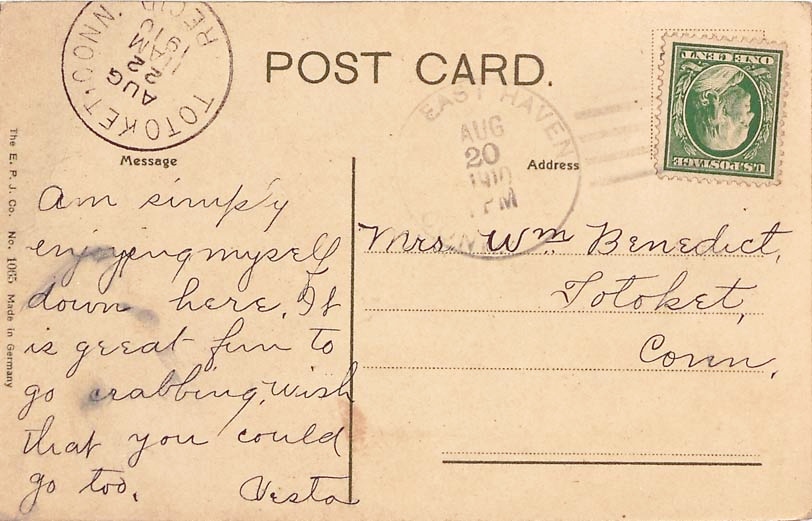 POST CARD.
TOTOKET, CONN.
REC'D
AUG
22
AM
1910
EAST HAVEN
AUG
20
1910
PM
CONN
U.S. POSTAGE
ONE CENT
Message
Address
Am simply
enjoying myself
down here. It
is great fun to
go crabbing. Wish
that you could
go too.
Vesta
Mrs. Wm Benedict,
Totoket,
Conn.
The E. P. J. Co. No. 1065 Made in Germany